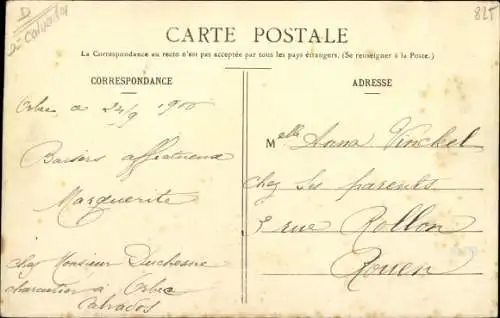 D
Calvados
825
CARTE POSTALE
La Correspondance au recto n'est pas acceptée par tous les pays étrangers. (Se renseigner à la Poste.)
CORRESPONDANCE
ADRESSE
Orbec 24/9 1900
Baisers affectueux
Marguerite
chez Monsieur Duchesne
charcutier à Orbec
Calvados
Melle Anna Vinckel
chez ses parents
rue Rollon
Rouen